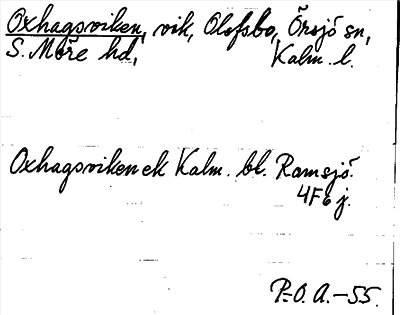 Oxhagsviken, vik, Olofsbo, Örsjö sn,
S. Möre hd, Kalm. l.
Oxhagsviken ek Kalm. bl. Ramsjö.
4F6j.
P.-O. A.-55.